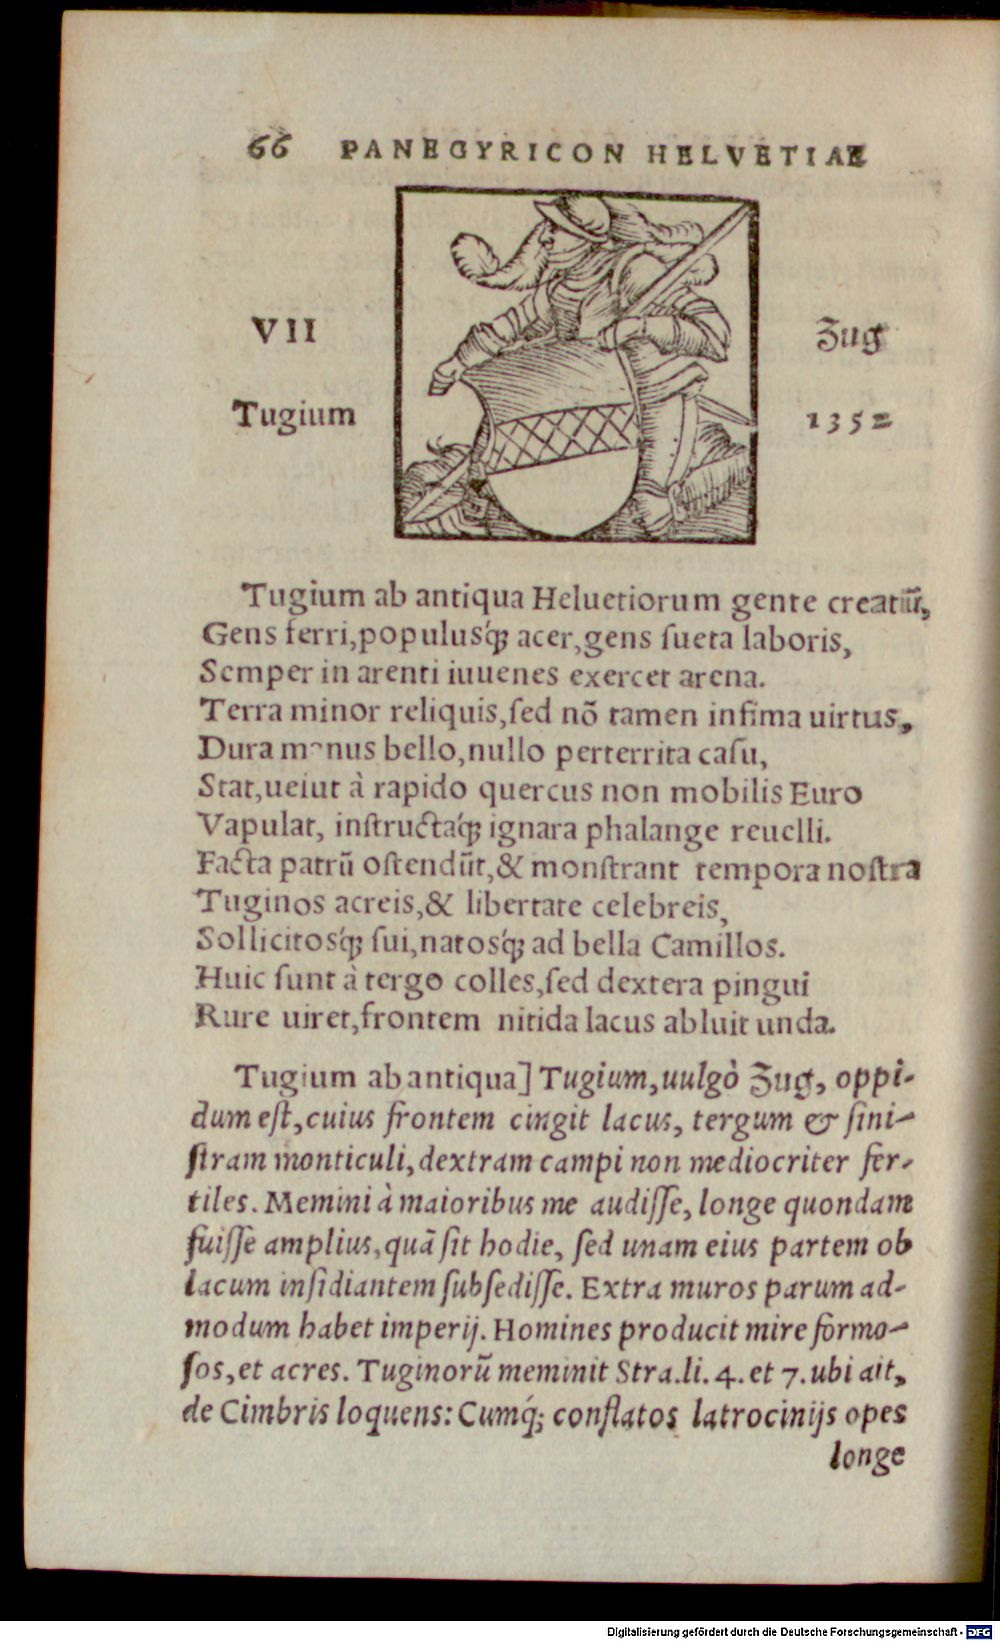 66 PANEGYRICON HELVETIAE
VII
Zug
Tugium
1352
Tugium ab antiqua Heluetiorum gente creatũ,
Gens ferri, populusq́ꝫ acer, gens ſueta laboris,
Semper in arenti iuuenes exercet arena.
Terra minor reliquis, ſed nõ tamen infima uirtus,
Dura manus bello, nullo perterrita caſu,
Stat, uelut à rapido quercus non mobilis Euro
Vapulat, inſtructaq́ꝫ ignara phalange reuelli.
Facta patrũ oſtendũt, & monſtrant tempora noſtra
Tuginos acreis, & libertate celebreis,
Sollicitosq́ꝫ ſui, natosq́ꝫ ad bella Camillos.
Huic ſunt à tergo colles, ſed dextera pingui
Rure uiret, frontem nitida lacus abluit unda.
Tugium ab antiqua] Tugium, uulgò Zug, oppi-
dum eſt, cuius frontem cingit lacus, tergum & ſini-
ſtram monticuli, dextram campi non mediocriter fer-
tiles. Memini à maioribus me audiſſe, longe quondam
fuiſſe amplius, quã ſit hodie, ſed unam eius partem ob
lacum inſidiantem ſubſediſſe. Extra muros parum ad-
modum habet imperij. Homines producit mire formo-
ſos, et acres. Tuginorũ meminit Stra. li. 4. et 7. ubi ait,
de Cimbris loquens: Cumq́; conflatos latrocinijs opes
longe
Digitalisierung gefördert durch die Deutsche Forschungsgemeinschaft - DFG